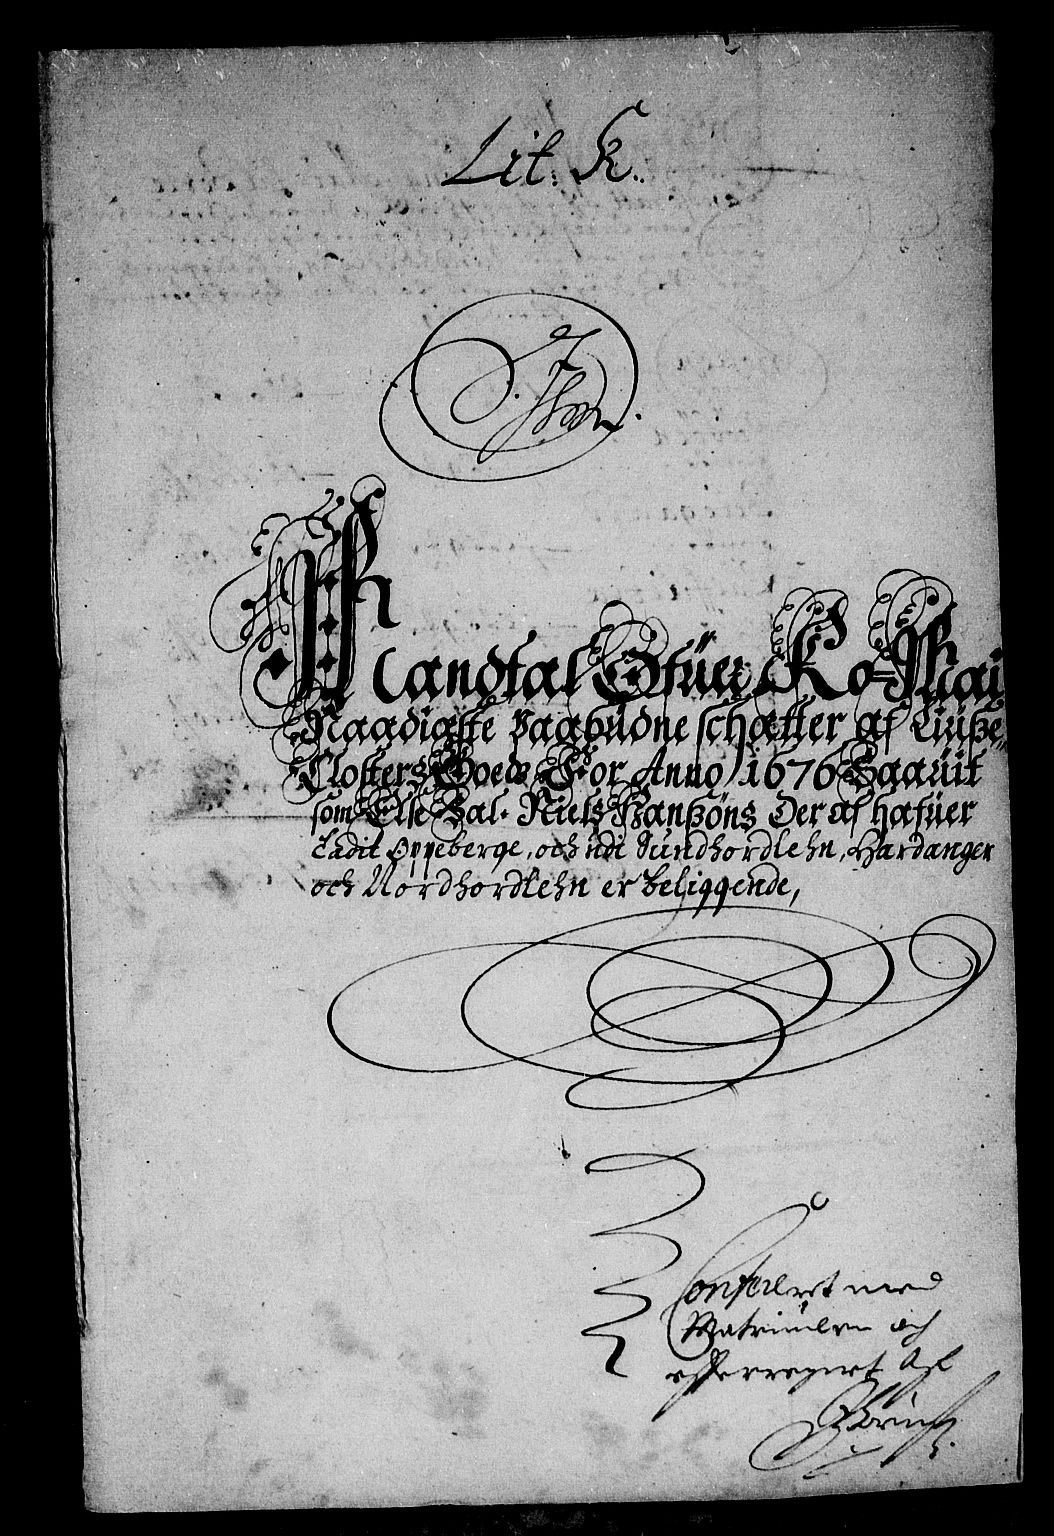 Lit: K.
Mandtal Ofuer Ko: Mai
Naadigste Paabudne schatter af Liuße
Closters Goeds For Anno 1676 Saauit
som Else Sal. Niels Hanßöns Der af hafuer
Ladit Oppeberge, och udi Sundhordlehn, Hardanger
och Nordhordlehn er beliggende,
Confereret med
Matriculen och
efterregnet af